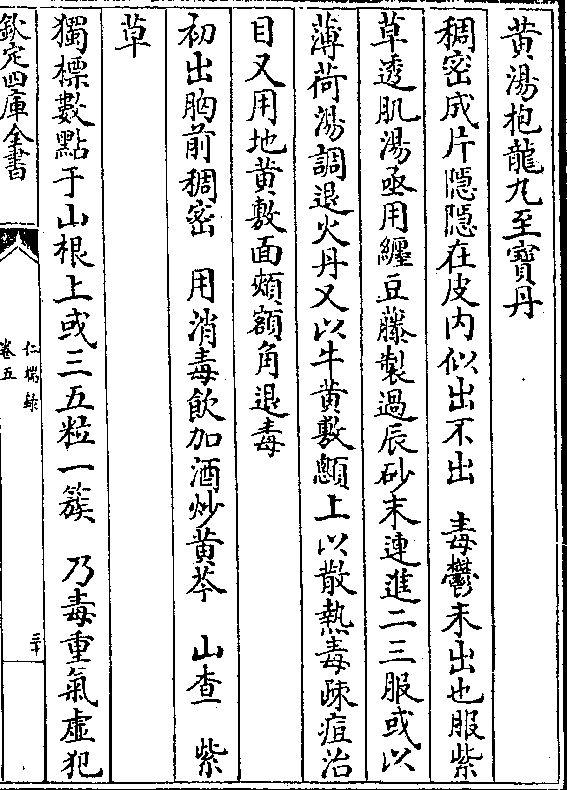 黄湯抱龍九至寶丹
稠密成片隠隠在皮内似出不出　毒鬱未出也服紫
草透肌湯亟用纒豆藤製過辰砂末連進二三服或以
薄荷湯調退火丹又以牛黄敷顖上以散熱毒疎痘治
目又用地黄敷面頰額角退毒
初出胸前稠密　用消毒飲加酒炒黄芩　山查　紫
草
獨標數點于山根上或三五粒一簇　乃毒重氣虚犯
欽定四庫全書
仁端錄
卷五
三十